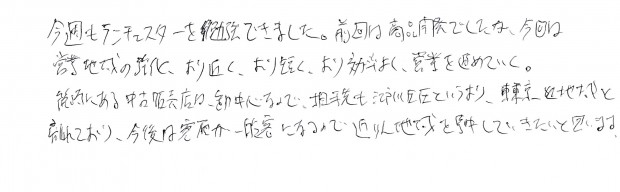 今週もランチェスターを勉強できました。前回は商品実際でしたが、今回は
営業地域の強化、より近く、より短く、より効率よく、営業を進めていく。
にある中古販売店は、中心なので、相手先も江戸川区区というより、東京 地域と
離れており、今後は客層が一般客になるので近りん地域を集中していきたいと思います。